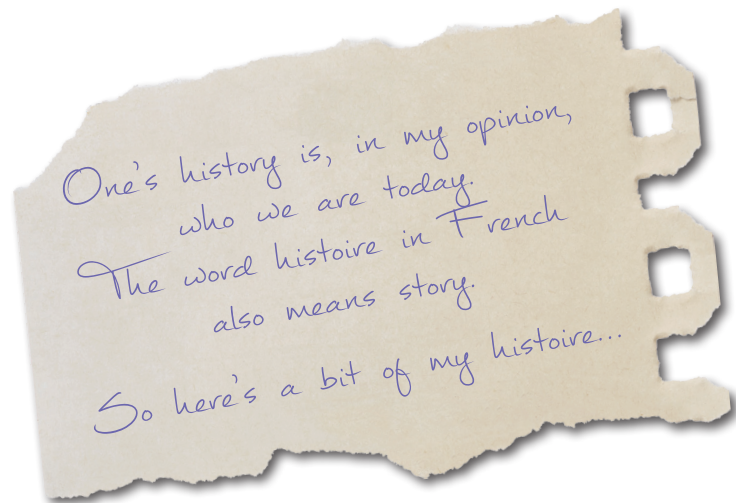 One's history is, in my opinion,
who we are today.
The word histoire in French
also means story.
So here's a bit of my histoire...